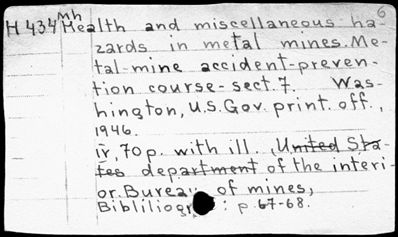 6
Mh
H 434 Health and miscellaneous ha-
zards in metal mines. Me-
tal-mine accident-preven-
tion course-sect. 7. Was-
hington, U.S. Gov. print. off.,
1946.
iv, 70 p. with ill. (United Sta-
tes department of the interi-
or. Bureau of mines)
Bibliliogr : p. 67-68.